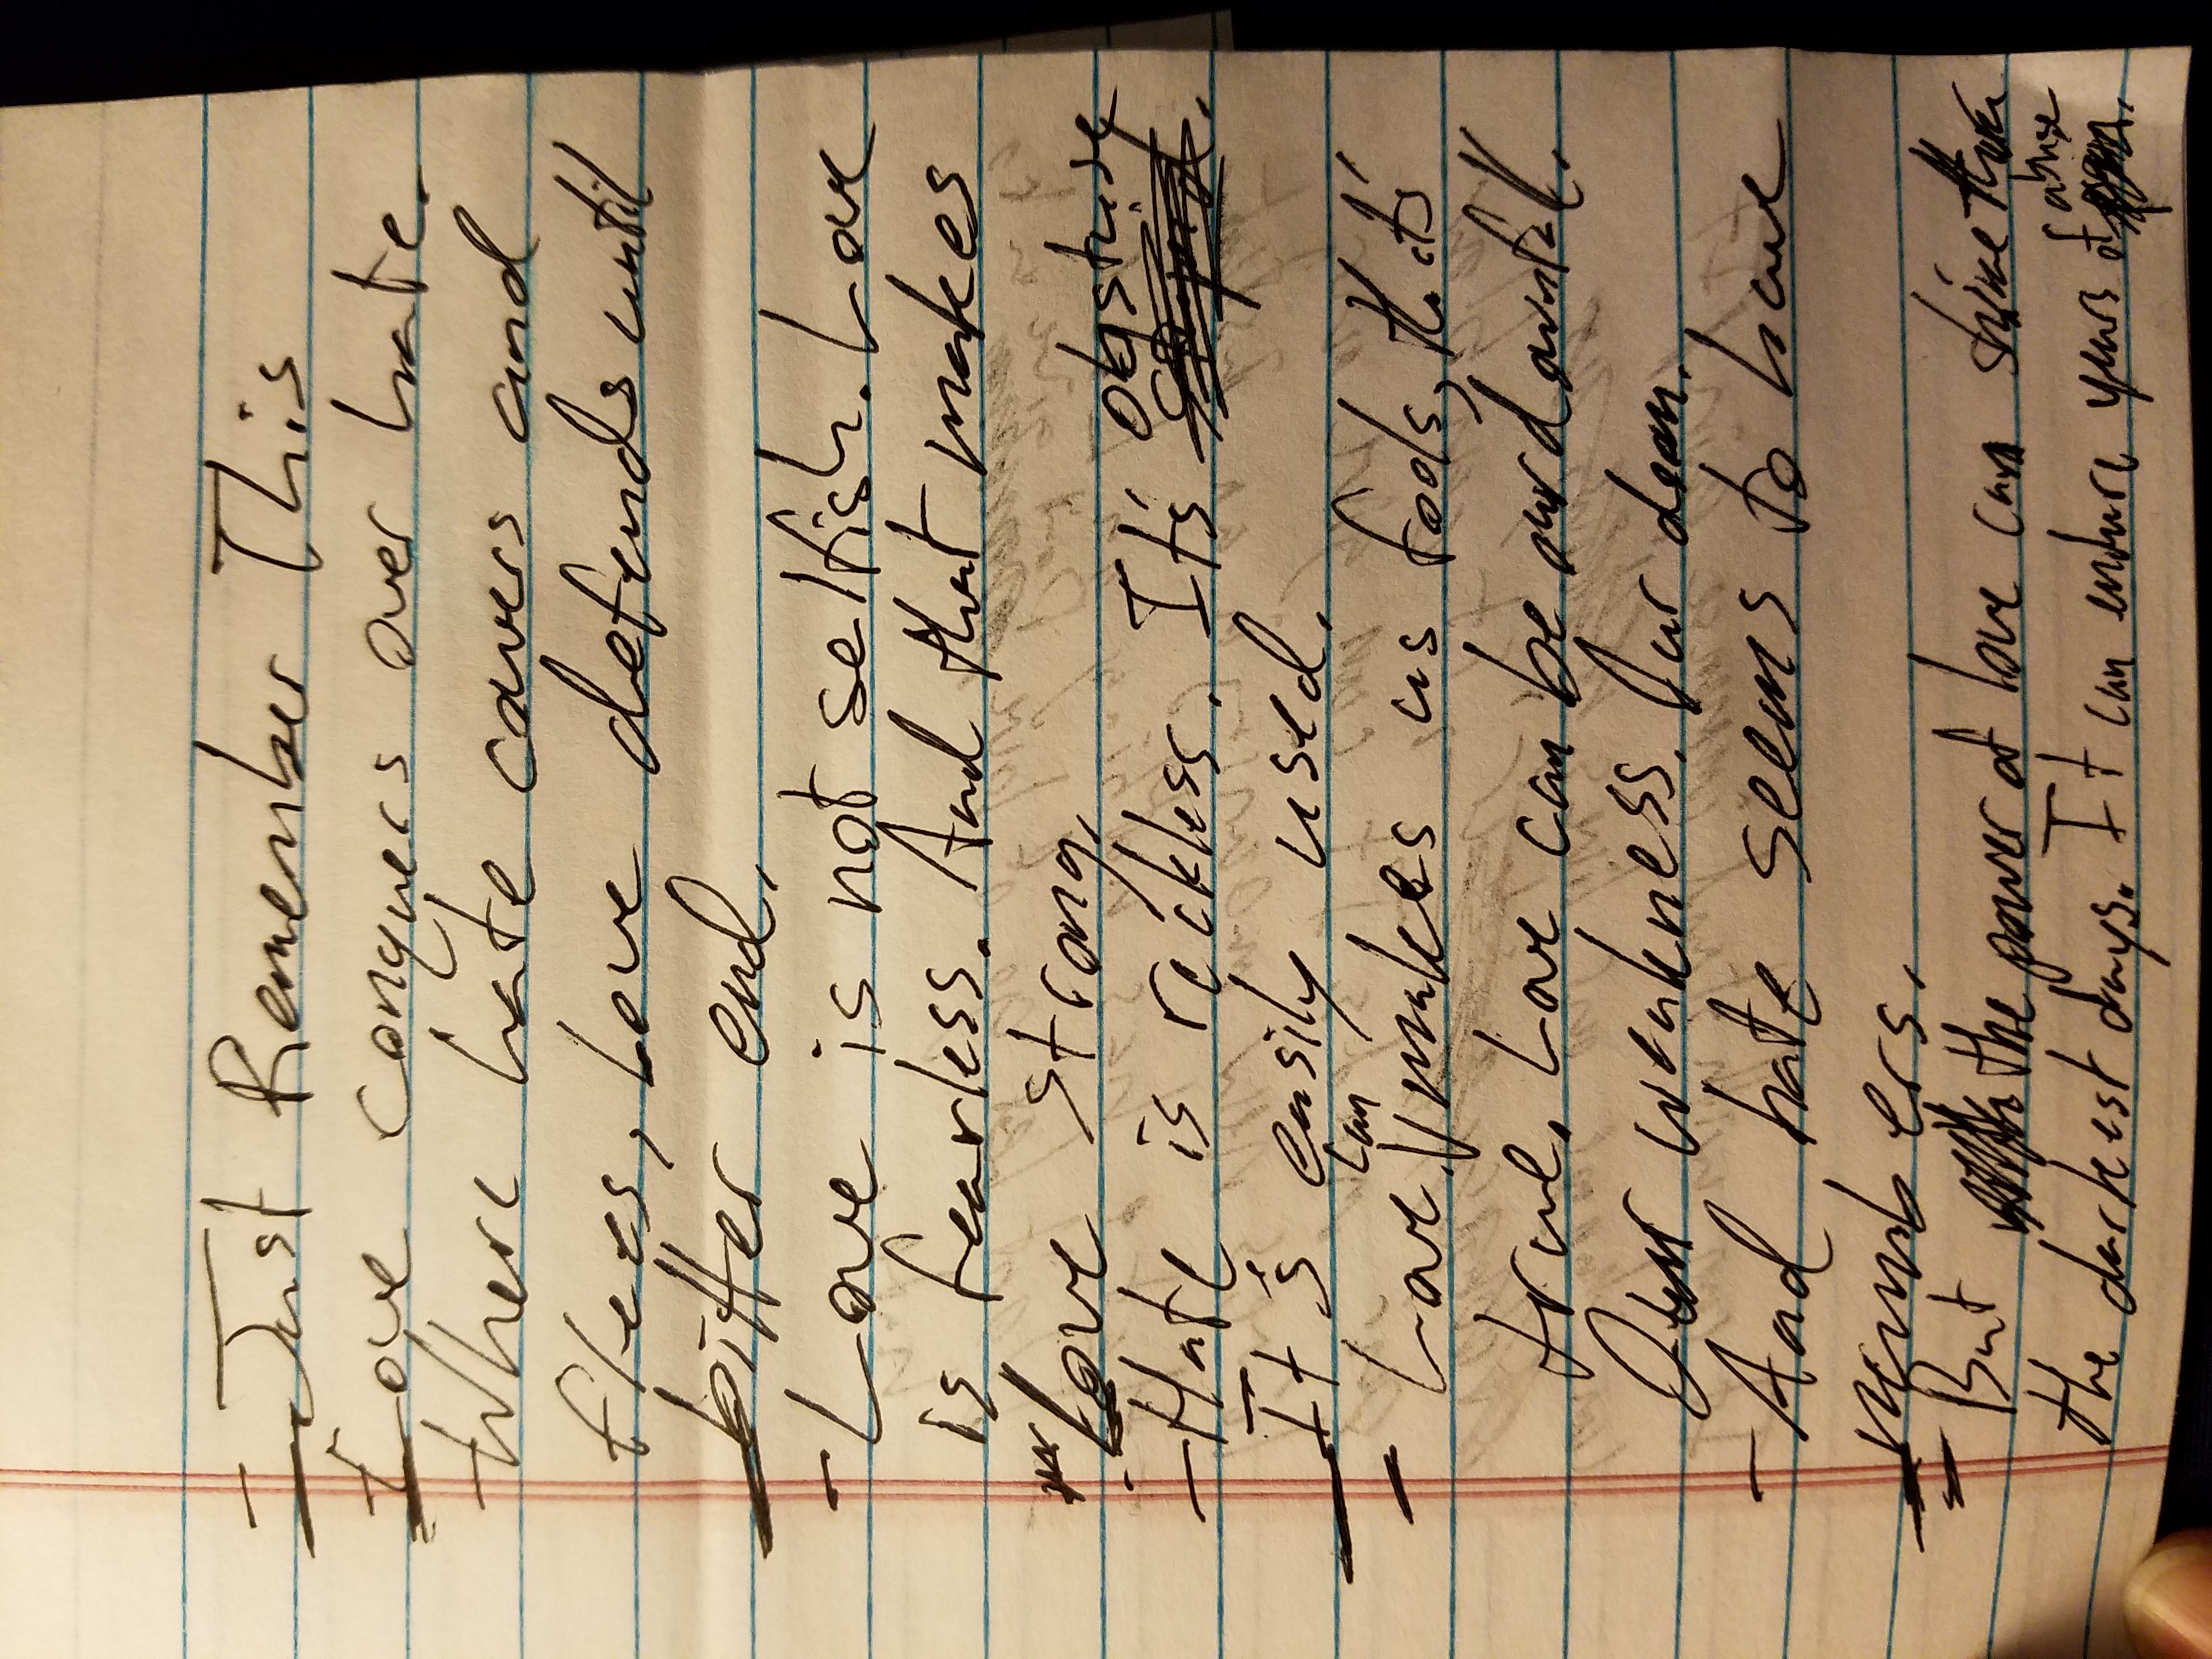 - Just Remember This
Love conquers over hate.
- Where hate cowers and
flees, Love defends until
bitter end.
- Love is not selfish. Love
is fearless. And that makes
Love strong.
obstuse
- Hate is reckless. It's stupid.
It's easily used.
can
- Love makes us fools, that's
true. Love can be our downfall.
Our weakness. Our doom.
- And hate seems to have
numbers.
- But the power of love can shine
abuse
the darkest days. It can endure years of pain.